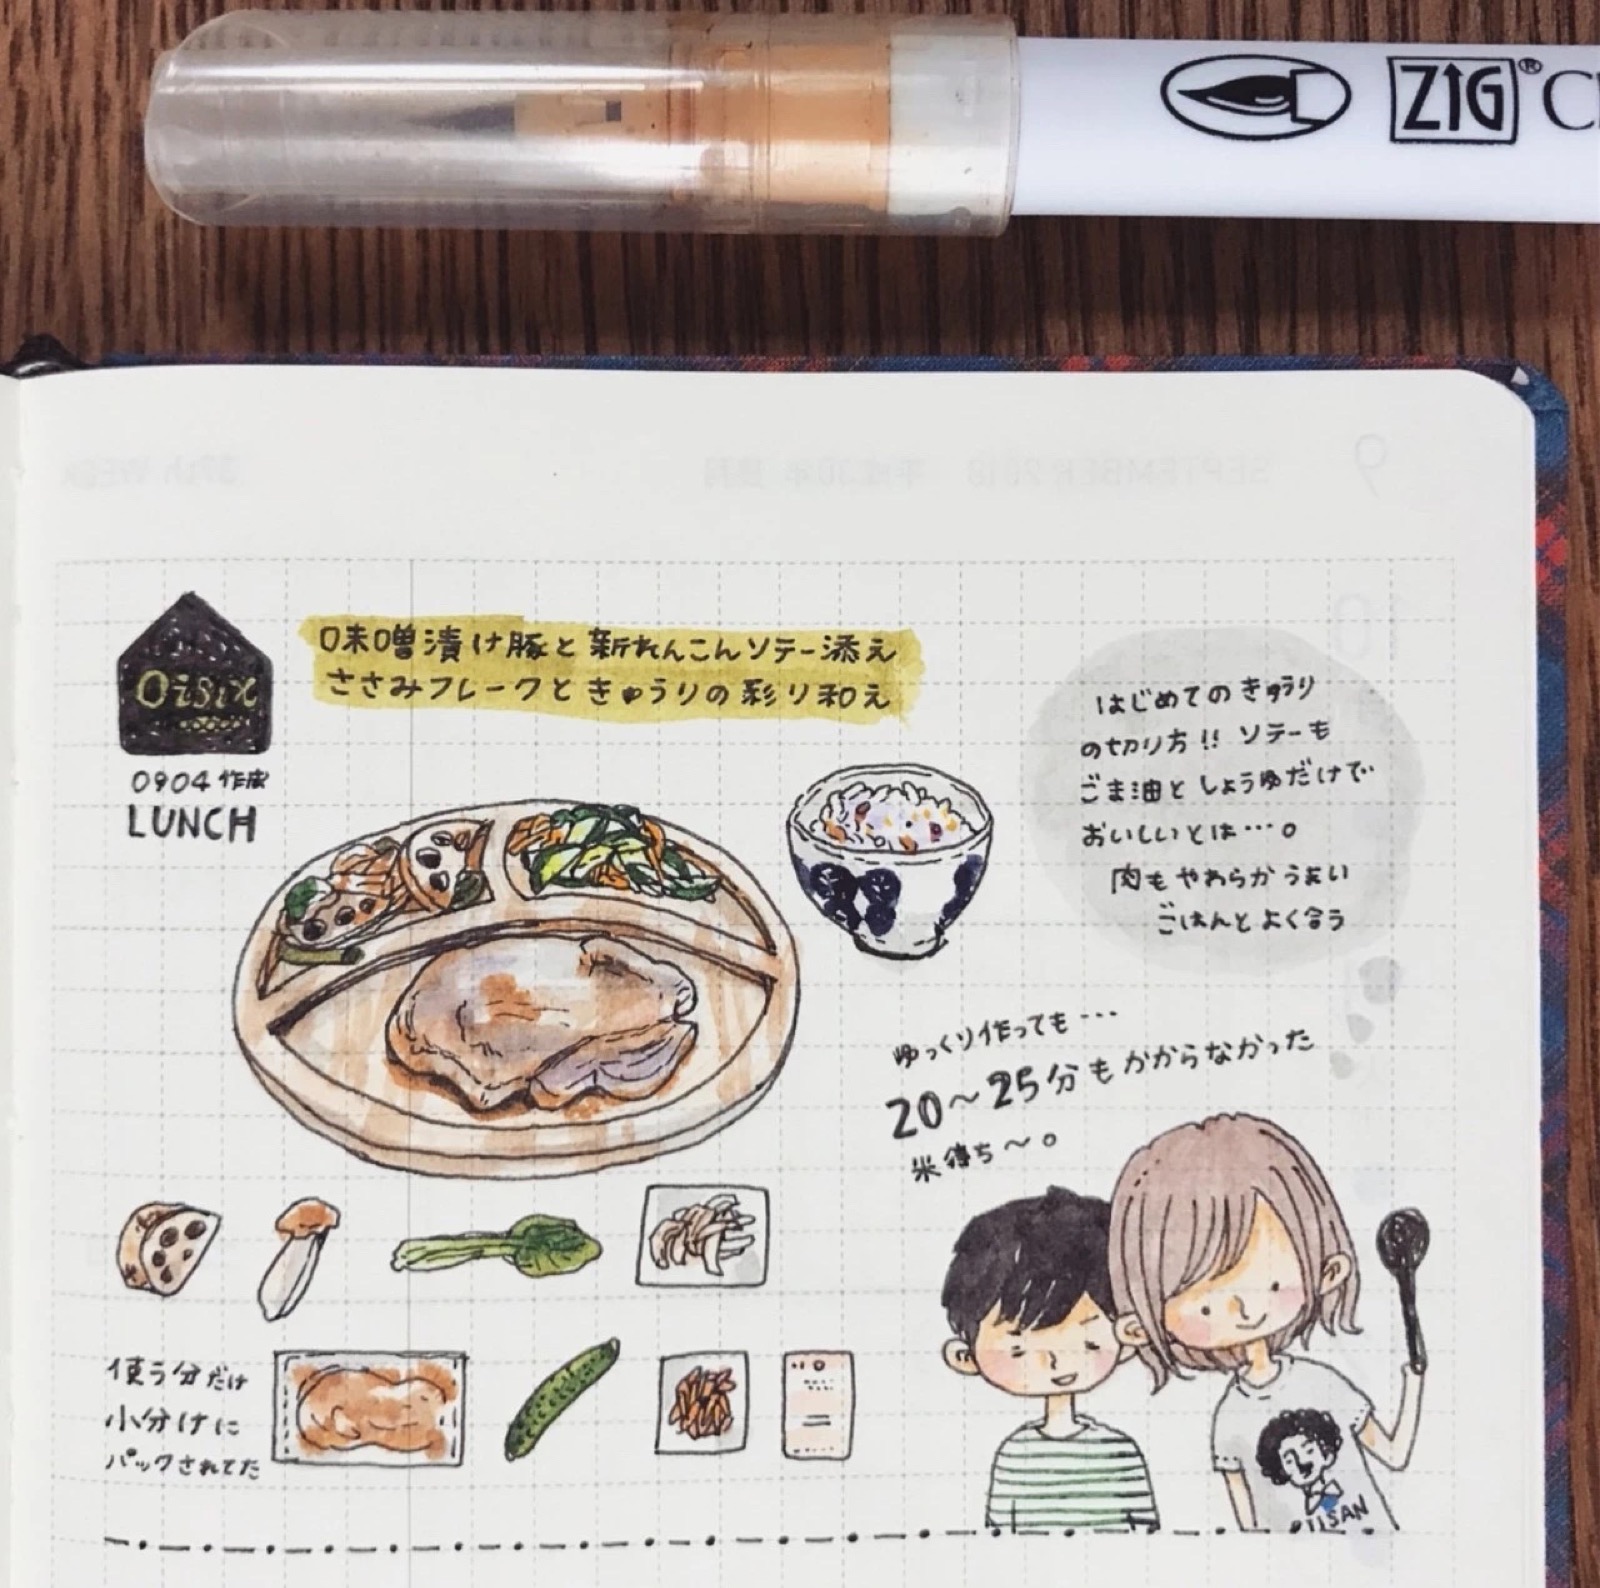 ZIG®
37th WEEK
平成30年 長月
SEPTEMBER 2018
9
10
Oisix
0904 作成
LUNCH
味噌漬け豚と新れんこんソテー添え
ささみフレークときゅうりの彩り和え
はじめてのきゅうり
の切り方!! ソテーも
ごま油としょうゆだけで
おいしいとは…。
肉もやわらかうまい
ごはんとよく合う
ゆっくり作っても…
20〜25分もかからなかった
米待ち〜。
使う分だけ
小分けに
パックされてた